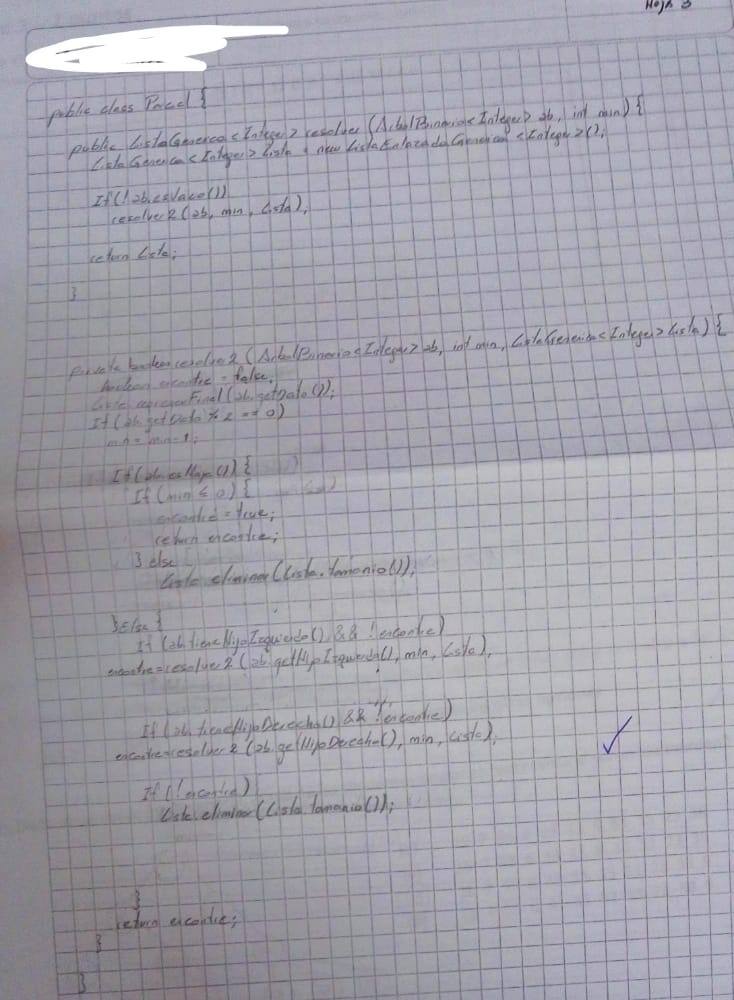 Hoja 3
public class Parcial {
public ListaGenerica<Integer> resolver (ArbolBinario<Integer> ab, int min) {
ListaGenerica<Integer> Lista = new ListaEnlazadaGenerica<Integer>();
If(!ab.esVacio())
resolver2(ab, min, Lista);
return Lista;
}
private boolean resolver2 (ArbolBinario<Integer> ab, int min, ListaGenerica<Integer> Lista) {
boolean encontre = false;
Lista.agregarFinal(ab.getDato());
If(ab.getDato % 2 == 0)
min = min-1;
If(ab.esHoja()) {
If (min ≤ 0) {
encontre = true;
return encontre;
} else
Lista.eliminar(Lista.tamanio());
}Else {
If (ab.tieneHijoIzquierdo() && !encontre)
encontre=resolver2(ab.getHijoIzquierdo(), min, Lista);
If (ab.tieneHijoDerecho() && !encontre)
encontre=resolver2(ab.getHijoDerecho(), min, Lista);
If (!encontre)
Lista.eliminar(Lista.tamanio());
}
return encontre;
}
}